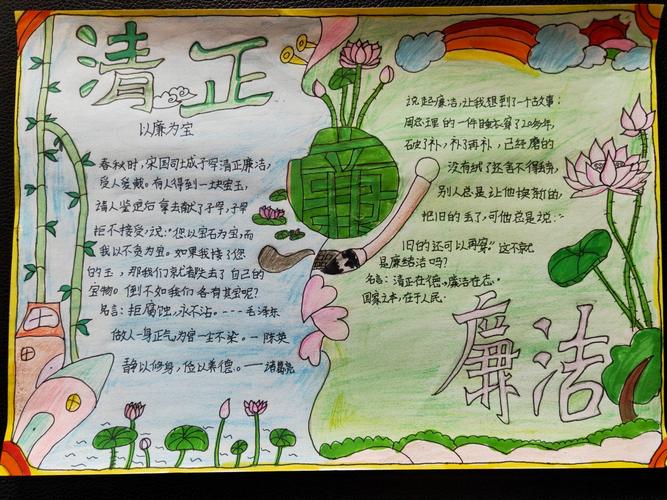 清正
以廉为宝
春秋时，宋国司城子罕清正廉洁，
受人爱戴。有人得到一块宝玉，
请人鉴定后拿去献了子罕，子罕
拒不接受，说："您以宝石为宝，而
我以不贪为宝。如果我接了您
的玉，那我们就都失去了自己的
宝物。倒不如我们各有其宝呢？
名言：拒腐蚀，永不沾。---毛泽东
做人一身正气，为官一尘不染。—陈英
静以修身，俭以养德。——诸葛亮
廉
说起廉洁，让我想到了一个故事：
周总理的一件睡衣穿了20多年，
破了补，补了再补，已经磨的
没有绒了还舍不得丢，
别人总是让他换新的，
把旧的丢了，可他总是说：
旧的还可以再穿"这不就
是廉洁吗？
名言：清正在德，廉洁在志。
国家之本，在于人民。
廉洁